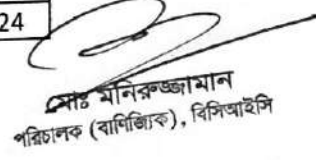 24
মোঃ মনিরুজ্জামান
পরিচালক (বাণিজ্যিক), বিসিআইসি